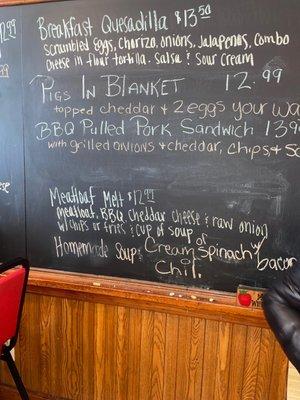 Breakfast Quesadilla $13.50
scrambled Eggs, Chorizo, onions, Jalapenos, combo
cheese in flour tortilla. Salsa & Sour Cream
Pigs In Blanket 12.99
topped cheddar & 2 eggs your wa
BBQ Pulled Pork Sandwich 13.9
with grilled onions & cheddar, chips & so
Meatloaf Melt $12.99
meatloaf, BBQ, cheddar cheese & raw onion
w/ chips or fries & cup of soup
Homemade Soup: Cream of Spinach w/ bacon
Chili